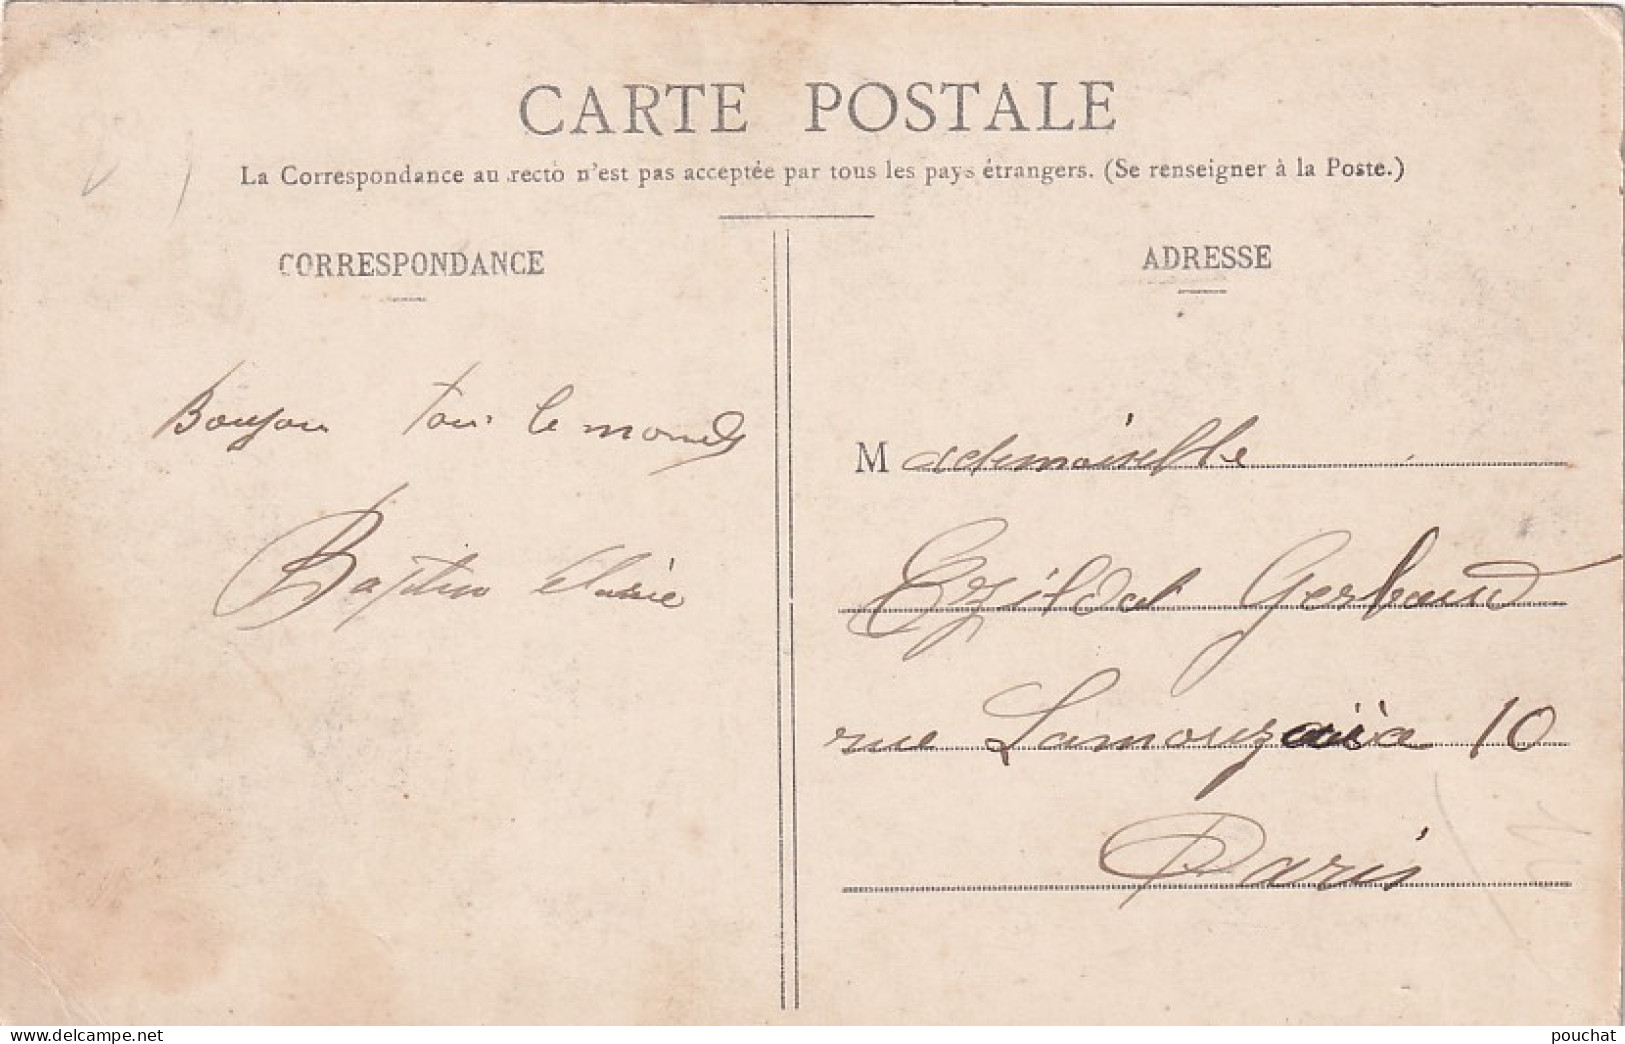 CARTE POSTALE
La Correspondance au recto n'est pas acceptée par tous les pays étrangers. (Se renseigner à la Poste.)
CORRESPONDANCE
Bonjour tous le monde
Baptin
ADRESSE
Mademoiselle
Ezilda Gerbaud
rue Lamouzaïa 10
Paris
www.delcampe.net
pouchat